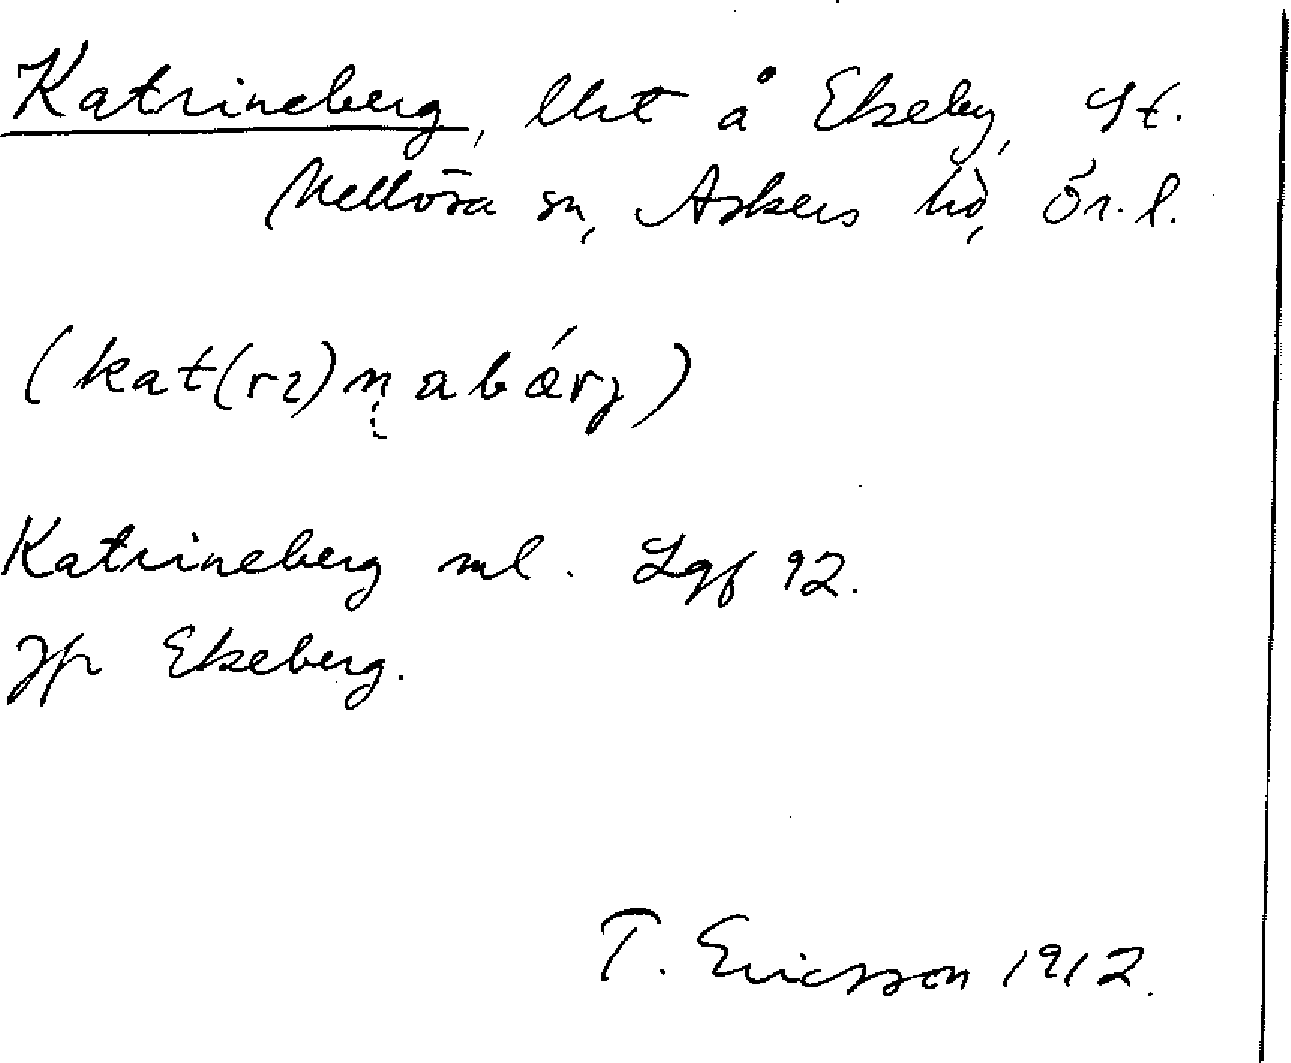 Katrineberg, lht å Ekeby, St.
Mellösa sn, Askers hd, Ör. l.
(kat(rı)nabǽrj)
Katrineberg ml. Lgf 92.
Jfr Ekeberg.
T. Ericsson 1912.